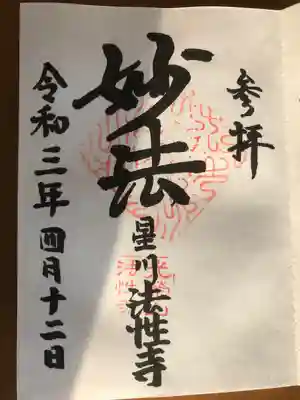 参拝
妙法
星川 法性寺
令和三年四月十二日